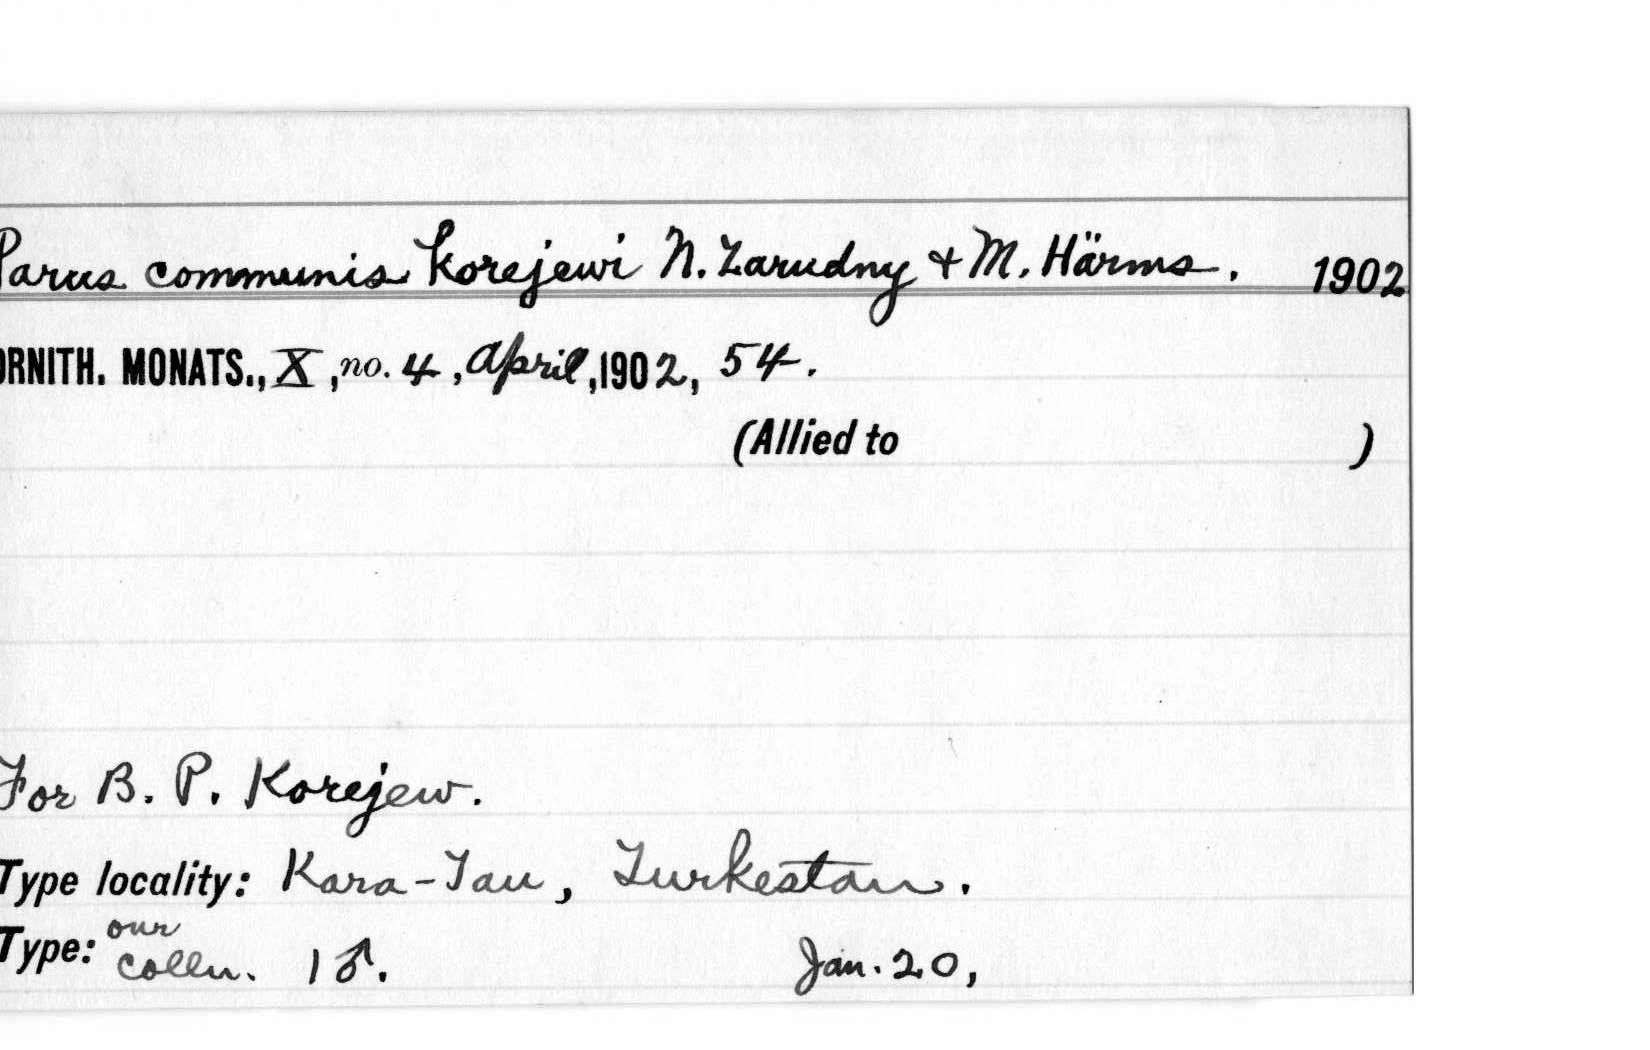 Parus communis korejewi N. Zarudny & M. Härms. 1902
ORNITH. MONATS., X, no. 4, April, 1902, 54.
(Allied to )
For B. P. Korejew.
Type locality: Kara-Tau, Turkestan.
our
Type: colln. 1♂. Jan. 20,